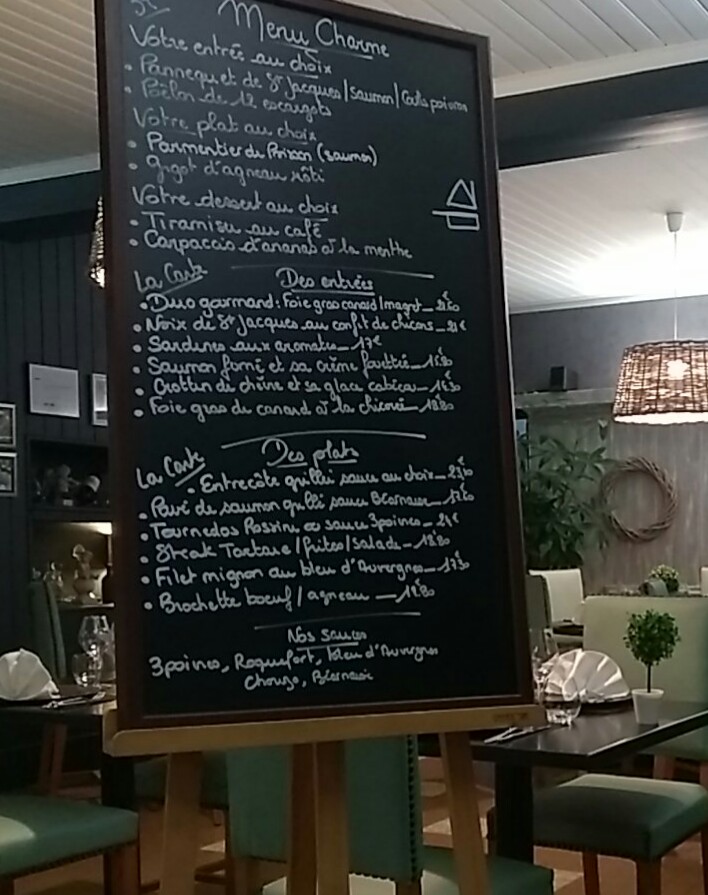 Menu Charme
Votre entrée au choix
• Pannequet de St Jacques / Saumon / Coulis poivron
• Poêlon de 12 escargots
Votre plat au choix
• Parmentier du Poisson (saumon)
• Gigot d'agneau rôti
Votre dessert au choix
• Tiramisu au café
• Carpaccio d'ananas à la menthe
La Carte Des entrées
• Duo gourmand : Foie gras canard / magret
• Noix de St Jacques au confit de chicons _ 21€
• Sardines aux aromates _ 17€
• Saumon fumé et sa crème fouettée
• Crottin de chèvre et sa glace
• Foie gras de canard à la chicorée _ 18€80
La Carte Des plats
• Entrecôte grillée sauce au choix
• Pavé de saumon grillé sauce Béarnaise
• Tournedos Rossini sauce 3 poivres _ 21€
• Steak Tartare / frites / salade _ 18€80
• Filet mignon au bleu d'Auvergne
• Brochette boeuf / agneau
Nos sauces
3 poivres, Roquefort, bleu d'Auvergne
Béarnaise